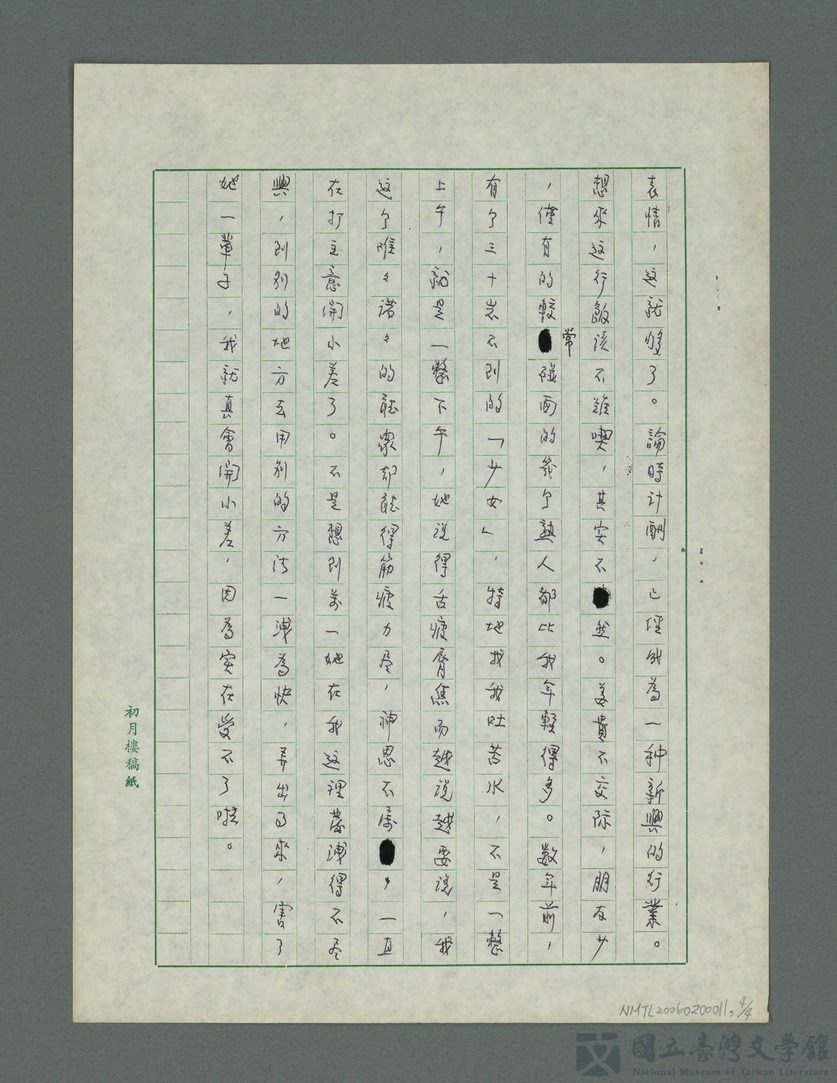 表情，这就够了。論時計酬，已經成為一种新興的行業。
想來这行飯該不難喫，其实不然。姜貴不交际，朋友少
，僅有的較常碰面的幾个熟人都比我年輕得多。数年前，
有个三十岁不到的「少女」，特地找我吐苦水，不是一整
上午，就是一整下午，她说得舌疲唇焦而越说越要说，我
这个唯々诺々的听众却听得筋疲力尽，神思不属，一直
在打主意開小差了。不是想到万一她在我这裡發洩得不尽
興，到别的地方去用别的方法一洩為快，弄出了來，害了
她一輩子，我就真會開小差，因為实在受不了啦。
初月樓稿紙
NMTL20060200011, 4/4
國立臺灣文學館
National Museum of Taiwan Literature